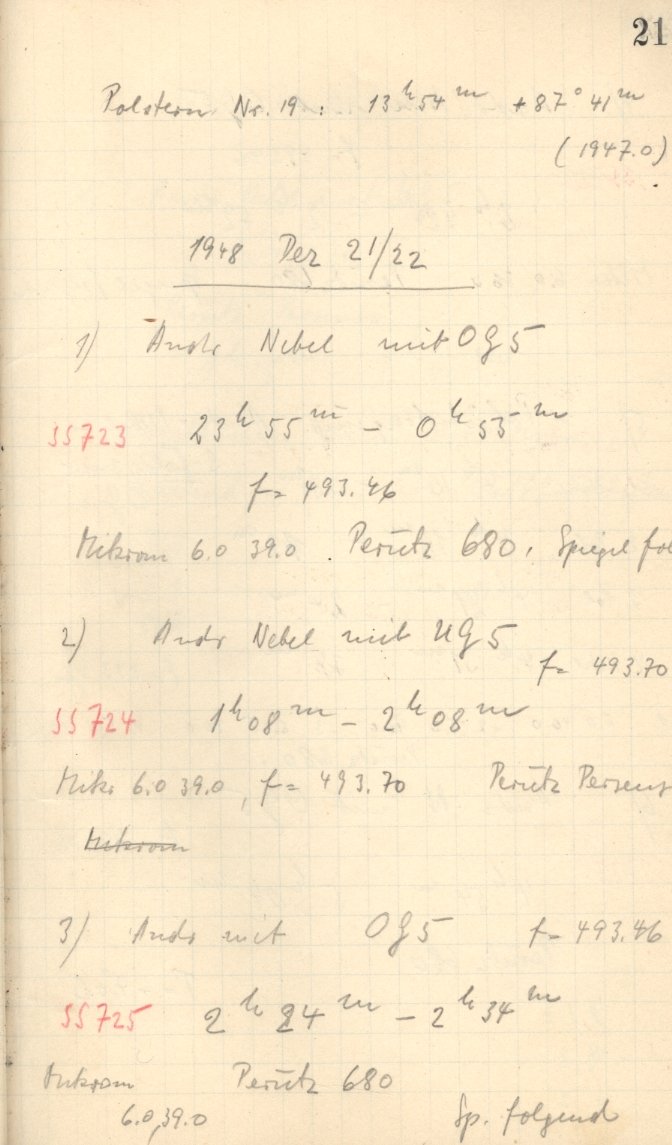 21
Polstern Nr. 19 : 13 h 54 m + 87° 41 m
(1947.0)
1948 Dez 21/22
1) Andr Nebel mit OG 5
SS723 23 h 55 m - 0 h 55 m
f = 493.46
Mikrom 6.0 39.0 Perutz 680, Spiegel fol
2) Andr Nebel mit UG 5
f = 493.70
SS724 1 h 08 m - 2 h 08 m
Mikr 6.0 39.0, f = 493.70 Perutz
Mikrom
3) Andr mit OG 5 f = 493.46
SS725 2 h 24 m - 2 h 34 m
Mikrom Perutz 680
6.0, 39.0 Sp. folgend